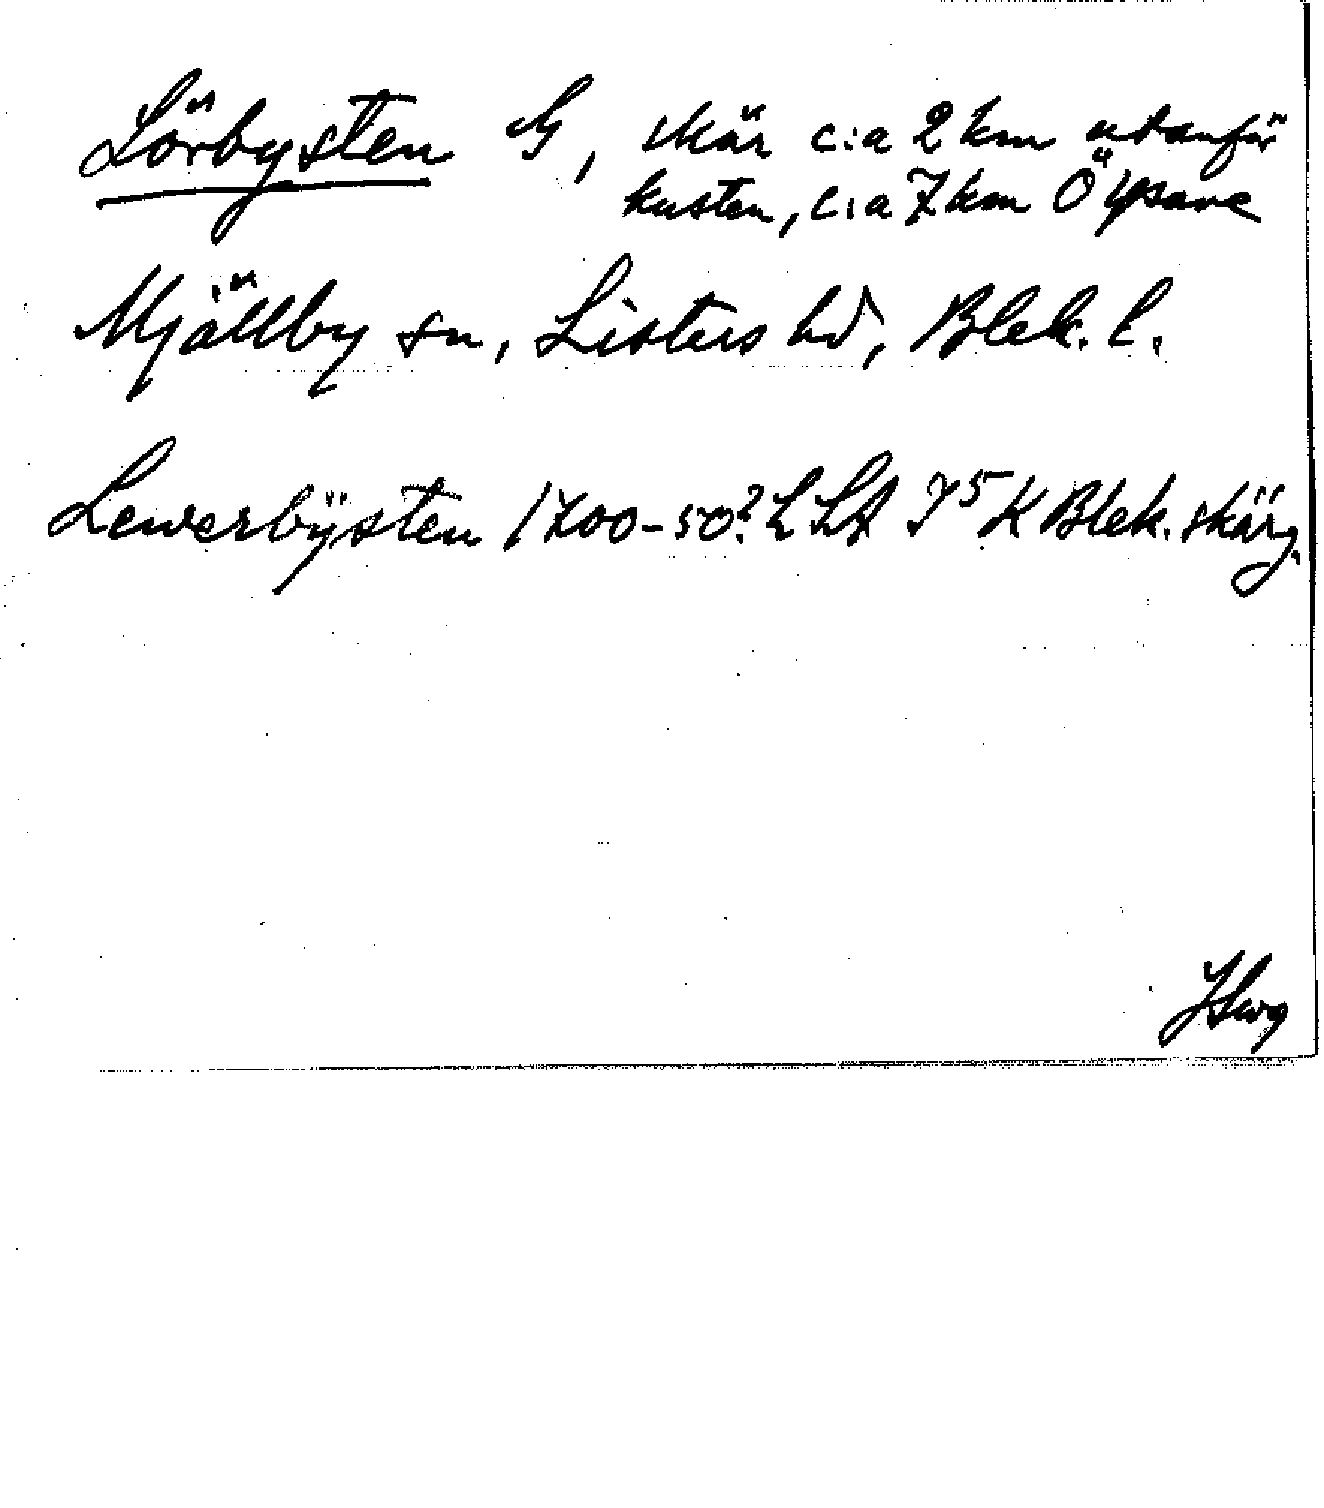 Lörbysten G, skär c:a 2 km utanför
kusten, c:a 7 km Ö Ysane
Mjällby sn, Listers hd, Blek. l.
Lewerbÿsten 1700-50? L LA I 5 K Blek. skärg.